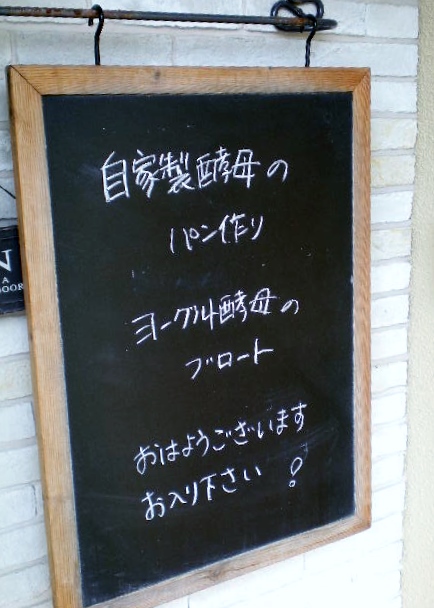 自家製酵母の
パン作り
ヨーグルト酵母の
ブロート
おはようございます
お入り下さい!
N
A
DOOR